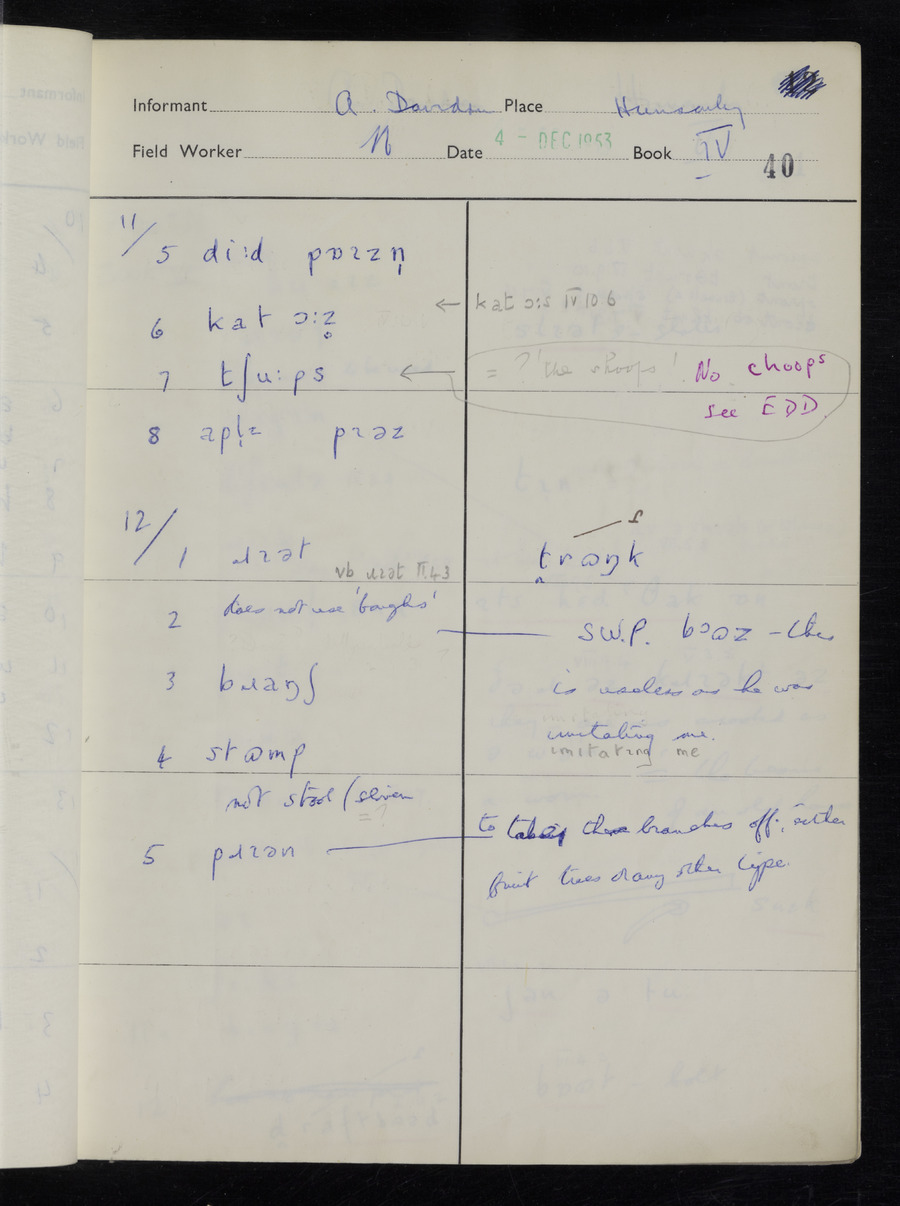 Informant A. Davidson Place Hunsonby
Field Worker N Date 4 - DEC 1953 Book IV
40
11/ 5 di:d pɒɪzn̩
6 kat ɔ:z̥ ← kat ɔ:s IV 10 6
7 tʃu:ps ← = ? 'the shoops' . No choops
see EDD
8 apl̩z
12/ 1 ɹɪət
vb ɹɪət II.4.3
2 does not use 'boughs'
S.W.P. bɔəz - this
is useless as he was
imitating me.
imitating me
3 bɹanʃ
4 stamp
not stool
= ?
5 to these branches off; either
fruit trees or any other type.